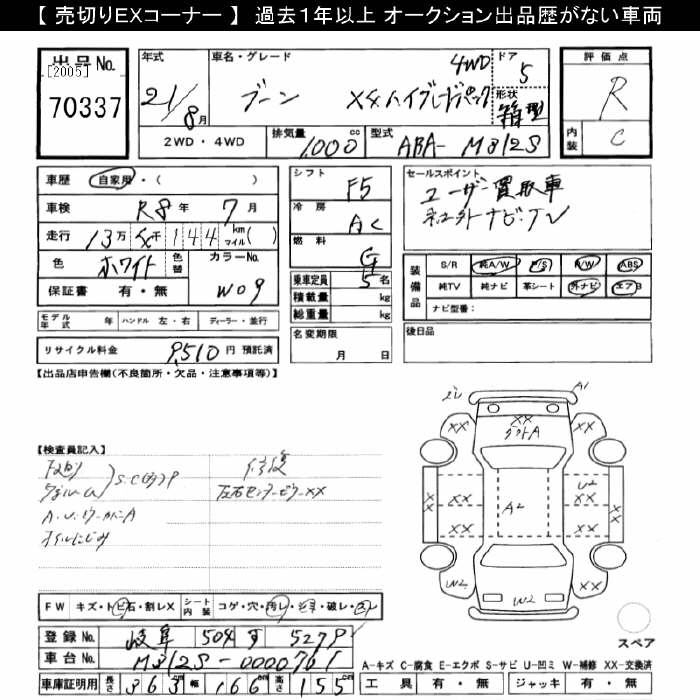 【 売切りEXコーナー 】 過去1年以上 オークション出品歴がない車両
出品No.
[2005]
70337
年式
21/8月
車名・グレード
4WD
ブーン X4ハイグレードパック
ドア
5
形状
箱型
2WD・4WD
排気量 1,000 cc
型式 ABA- M312S
評価点
R
内装
C
車歴 自家用・( )
車検 R8年 7月
走行 13万 5千 1 4 4 km マイル( )
色 ホワイト 色替
カラーNo. W09
保証書 有・無
シフト F5
冷房 AC
燃料 G
乗車定員 5 名
積載量 kg
総重量 kg
セールスポイント
ユーザー買取車
社外ナビ.TV
装備品
S/R 純A/W P/S P/W ABS
純TV 純ナビ 革シート 外ナビ エアB
ナビ型番:
モデル年式 年 ハンドル 左・右 ディーラー・並行
リサイクル料金 9,510 円 預託済
名変期限
月 日
後日品
【出品店申告欄(不良箇所・欠品・注意事項等)】
【検査員記入】
修復
左右センターピラーXX
オイルにじみ
A1
XX
XX
XX
A
XX
XX
XX
U2
XX
A2
XX
XX
XX
W2
W2
XX
スペア
FW キズ・トビ石・割レX
シート内装 コゲ・穴・汚レ・シミ・破レ・スレ
登録No. 岐阜 504 す 5279
車台No. M312S-0000761
車庫証明用 長さ 363 幅 166 高さ 155 cm
A-キズ C-腐食 E-エクボ S-サビ U-凹ミ W-補修 XX-交換済
工具 有・無 ジャッキ 有・無